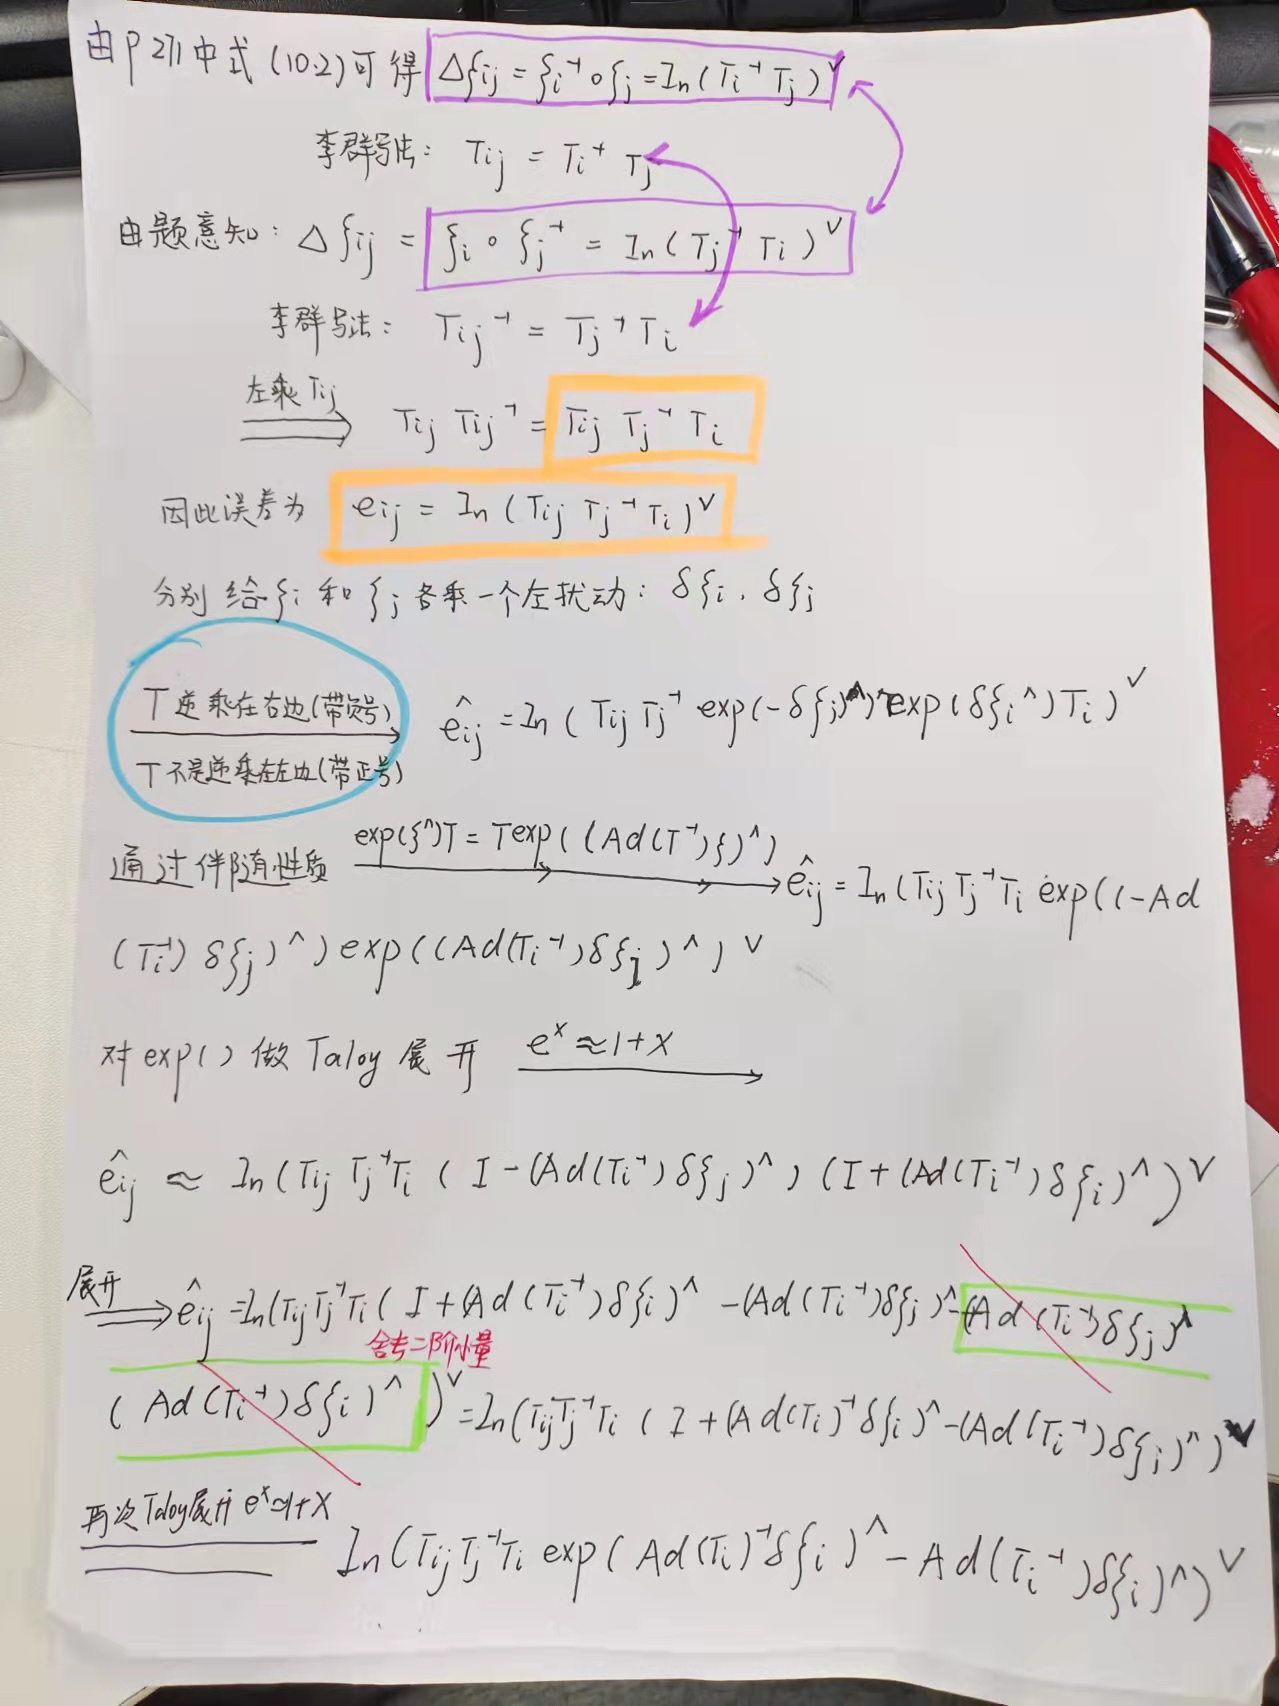 由P271中式(10.2)可得 Δξij = ξi⁻¹∘ξj = In(Ti⁻¹Tj)^∨
李群写法: Tij = Ti⁻¹ Tj
由题意知: Δξij = ξi∘ξj⁻¹ = In(Tj⁻¹Ti)^∨
李群写法: Tij⁻¹ = Tj⁻¹Ti
左乘Tij
⟹ Tij Tij⁻¹ = Tij Tj⁻¹ Ti
因此误差为 eij = In(Tij Tj⁻¹Ti)^∨
分别给ξi和ξj各乘一个左扰动: δξi, δξj
T逆乘在右边(带负号)
T不是逆乘在左边(带正号)
êij = In(Tij Tj⁻¹ exp(-δξj)^∧)exp(δξi^∧)Ti)^∨
通过伴随性质 exp(ξ^∧)T = Texp((Ad(T⁻¹)ξ)^∧) êij = In(Tij Tj⁻¹Ti exp((-Ad
(Ti⁻¹)δξj)^∧)exp((Ad(Ti⁻¹)δξi)^∧)^∨
对exp()做Taloy展开 e^x≈1+x
êij ≈ In(Tij Tj⁻¹Ti (I-(Ad(Ti⁻¹)δξj)^∧)(I+(Ad(Ti⁻¹)δξi)^∧)^∨
展开 ⟹ êij = In(TijTj⁻¹Ti(I+(Ad(Ti⁻¹)δξi)^∧-(Ad(Ti⁻¹)δξj)^∧-(Ad(Ti⁻¹)δξj)^∧
舍去二阶小量
(Ad(Ti⁻¹)δξi)^∧)^∨ = In(TijTj⁻¹Ti(I+(Ad(Ti)⁻¹δξi)^∧-(Ad(Ti⁻¹)δξj)^∧)^∨
再次Taloy展开 e^x≈1+x
In(TijTj⁻¹Ti exp(Ad(Ti)⁻¹δξi)^∧-Ad(Ti⁻¹)δξi)^∧)^∨